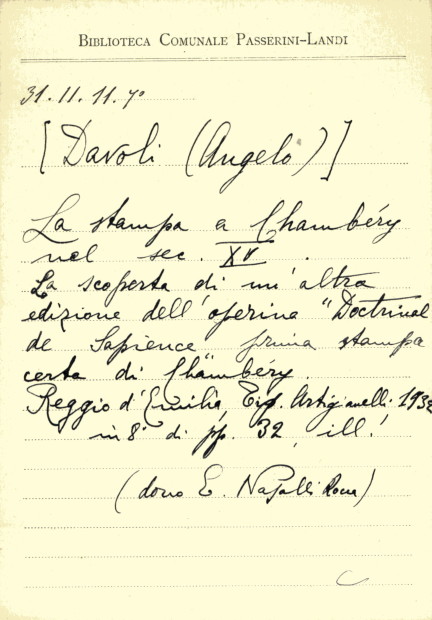 BIBLIOTECA COMUNALE PASSERINI-LANDI
31.II.11.7º
[Davoli (Angelo)]
La stampa a Chambéry
nel sec. XV.
La scoperta di un'altra
edizione dell'operina "Doctrinal
de Sapience prima stampa
certa di Chambéry".
Reggio d'Emilia, Tip. Artigianelli. 1932
in 8º di pp. 32, ill.
(dono E. Nasalli Rocca)